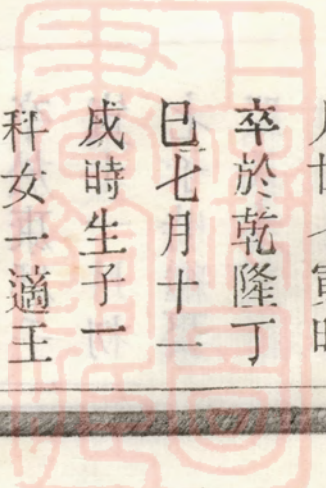 寅時
卒於乾隆丁
巳七月十一
戌時生子一
科女一適王